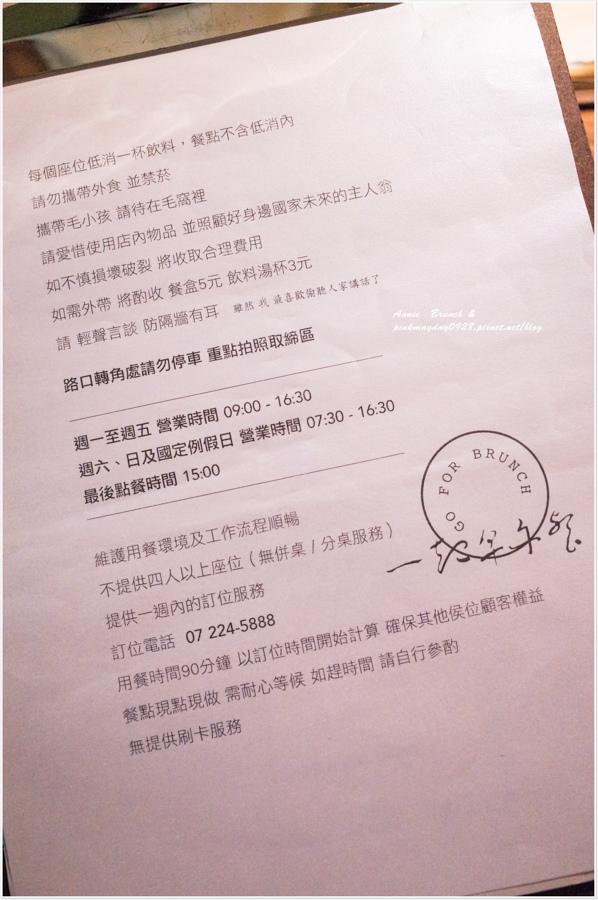 每個座位低消一杯飲料，餐點不含低消內
請勿攜帶外食 並禁菸
攜帶毛小孩 請待在毛窩裡
請愛惜使用店內物品 並照顧好身邊國家未來的主人翁
如不慎損壞破裂 將收取合理費用
如需外帶 將酌收 餐盒5元 飲料湯杯3元
請 輕聲言談 防隔牆有耳 雖然 我 最喜歡偷聽人家講話了
Annie Brunch &
pinkmayday0928.pixnet.net/blog
路口轉角處請勿停車 重點拍照取締區
週一至週五 營業時間 09:00 - 16:30
週六、日及國定例假日 營業時間 07:30 - 16:30
最後點餐時間 15:00
GO FOR BRUNCH
一起早午餐
維護用餐環境及工作流程順暢
不提供四人以上座位（無併桌 / 分桌服務）
提供一週內的訂位服務
訂位電話 07 224-5888
用餐時間90分鐘 以訂位時間開始計算 確保其他侯位顧客權益
餐點現點現做 需耐心等候 如趕時間 請自行參酌
無提供刷卡服務